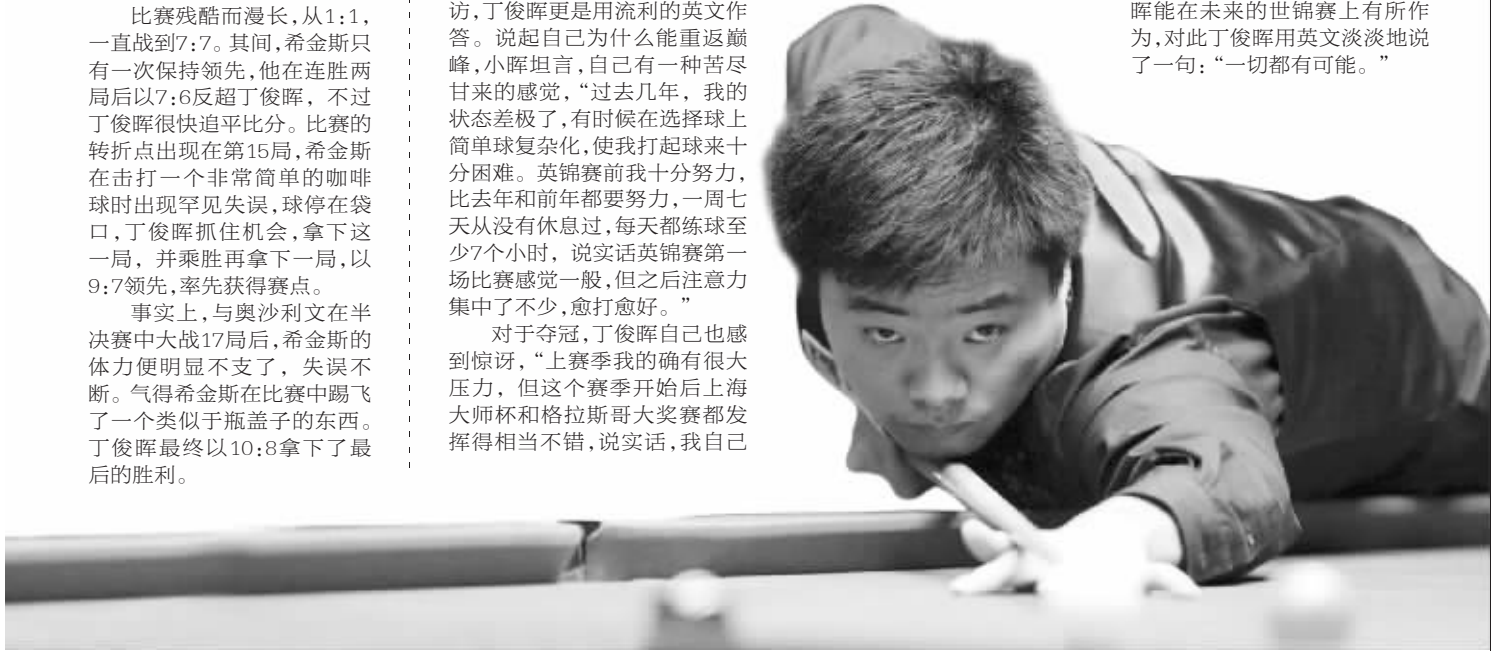 比赛残酷而漫长，从1:1，
一直战到7:7。其间，希金斯只
有一次保持领先，他在连胜两
局后以7:6反超丁俊晖，不过
丁俊晖很快追平比分。比赛的
转折点出现在第15局，希金斯
在击打一个非常简单的咖啡
球时出现罕见失误，球停在袋
口，丁俊晖抓住机会，拿下这
一局，并乘胜再拿下一局，以
9:7领先，率先获得赛点。
事实上，与奥沙利文在半
决赛中大战17局后，希金斯的
体力便明显不支了，失误不
断。气得希金斯在比赛中踢飞
了一个类似于瓶盖子的东西。
丁俊晖最终以10:8拿下了最
后的胜利。
访，丁俊晖更是用流利的英文作
答。说起自己为什么能重返巅
峰，小晖坦言，自己有一种苦尽
甘来的感觉，“过去几年，我的
状态差极了，有时候在选择球上
简单球复杂化，使我打起球来十
分困难。英锦赛前我十分努力，
比去年和前年都要努力，一周七
天从没有休息过，每天都练球至
少7个小时，说实话英锦赛第一
场比赛感觉一般，但之后注意力
集中了不少，愈打愈好。”
对于夺冠，丁俊晖自己也感
到惊讶，“上赛季我的确有很大
压力，但这个赛季开始后上海
大师杯和格拉斯哥大奖赛都发
挥得相当不错，说实话，我自己
晖能在未来的世锦赛上有所作
为，对此丁俊晖用英文淡淡地说
了一句：“一切都有可能。”